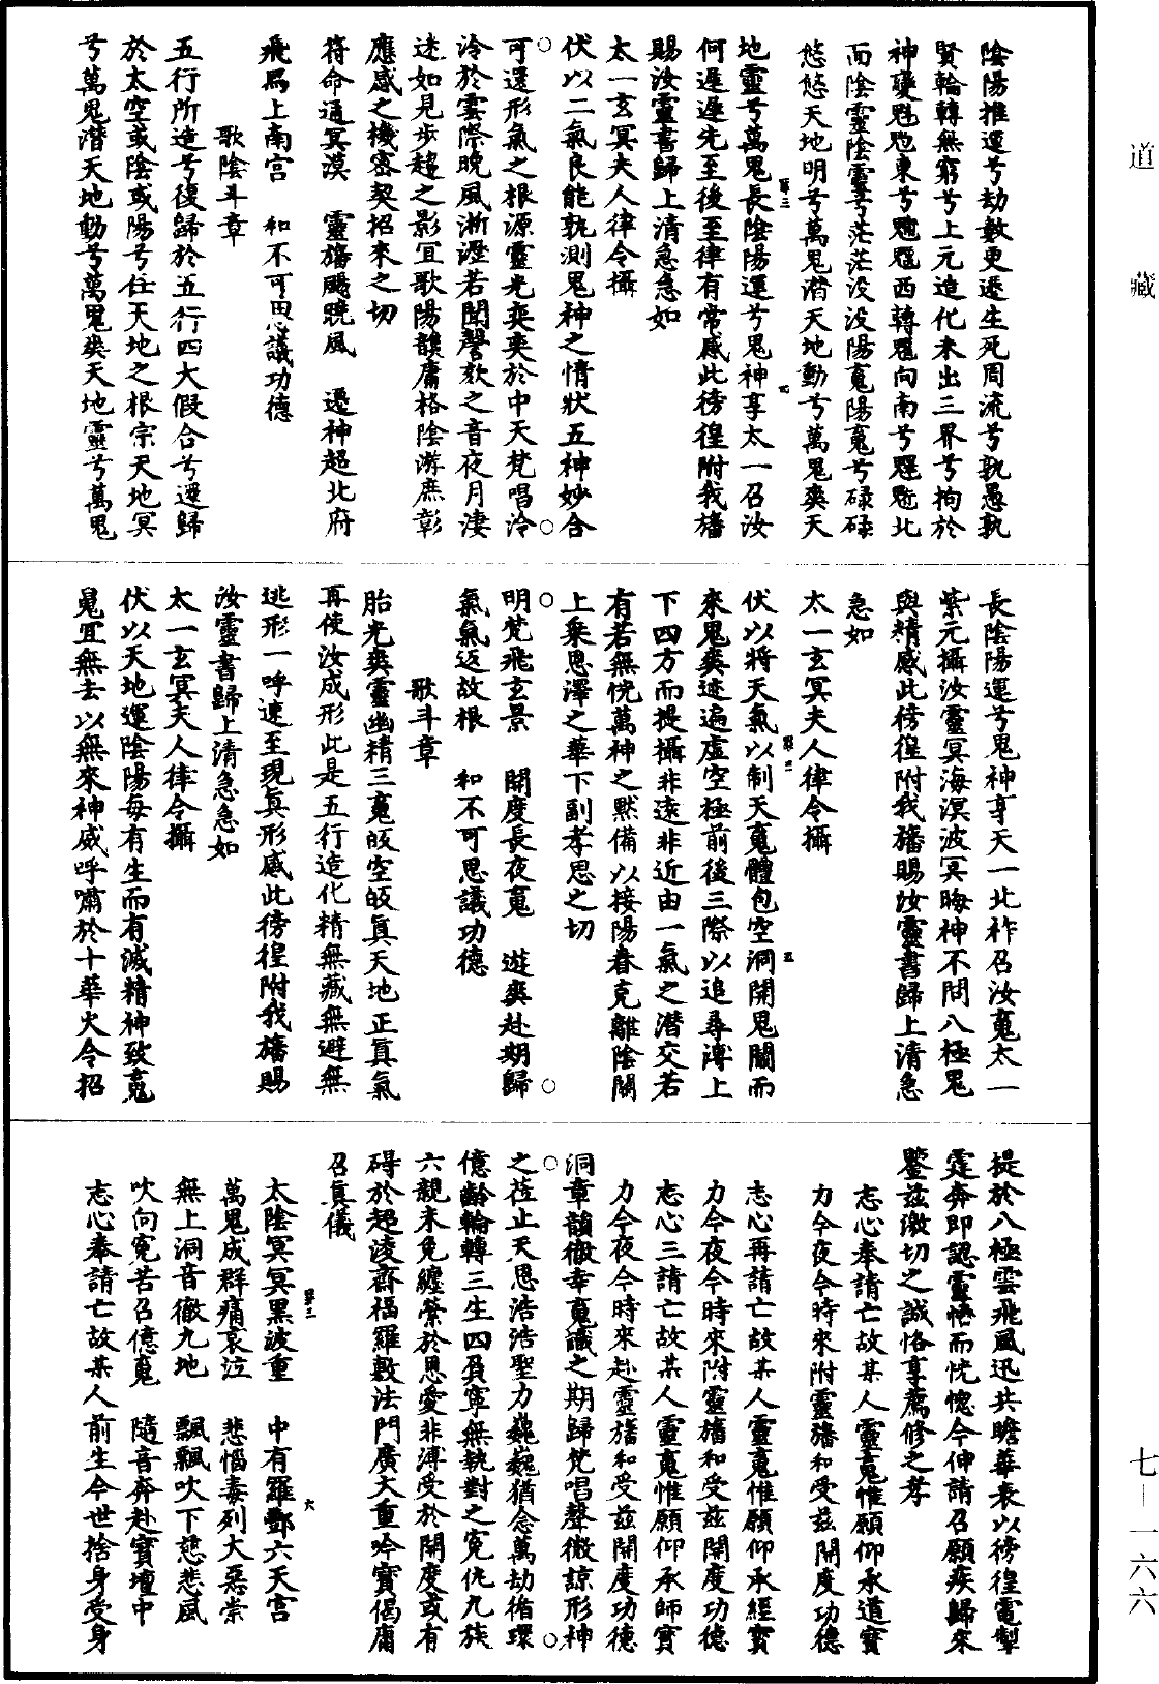 道藏
七—一六六
陰陽推遷兮劫數更遷生死周流兮孰愚孰
賢輪轉無窮兮上元造化未出三界兮拘於
神變魁䰢東兮魓魒西轉魒向南兮魓魒北
而陰靈陰靈兮茫茫没没陽魂陽魂兮碌碌
悠悠天地明兮萬鬼潛天地動兮萬鬼喪天
地靈兮萬鬼長陰陽運兮鬼神享太一召汝
何遲遲先至後至律有常感此徬徨附我旛
賜汝靈書歸上清急急如
太一玄冥夫人律令攝
伏以二氣良能孰測鬼神之情狀五神妙合
可還形氣之根源靈光奕奕於中天梵唱泠
泠於雲際晚風淅瀝若聞謦欬之音夜月淒
迷如見步趨之影宜歌陽韻庸格陰游庶彰
應感之機密契招來之切
符命通冥漠　靈旛颺曉風　遷神超北府
飛舄上南宮　和不可思議功德
歌陰斗章
五行所造兮復歸於五行四大假合兮還歸
於太空或陰或陽兮任天地之根宗天地冥
兮萬鬼潛天地動兮萬鬼喪天地靈兮萬鬼
長陰陽運兮鬼神享天一北祚召汝魂太一
紫元攝汝靈冥海溟波冥晦神不問八極鬼
與精感此徬徨附我旛賜汝靈書歸上清急
急如
太一玄冥夫人律令攝
伏以將天氣以制天魂體包空洞開鬼關而
來鬼爽迹遍虛空極前後三際以追尋溥上
下四方而提攝非遠非近由一氣之潛交若
有若無恍萬神之黙備以接陽春克離陰關
上乘恩澤之華下副孝思之切
明梵飛玄景　開度長夜魂　遊爽赴期歸
氣氣返故根　和不可思議功德
歌斗章
胎光爽靈幽精三魂皎空皎眞天地正眞氣
再使汝成形此是五行造化精無藏無避無
逃形一呼速至現眞形感此徬徨附我旛賜
汝靈書歸上清急急如
太一玄冥夫人律令攝
伏以天地運陰陽每有生而有滅精神致魂
鬼宜無去以無來神威呼嘯於十華火令招
提於八極雲飛風迅共瞻華表以徬徨電掣
霆奔即認靈悟而恍惚今伸請召願疾歸來
鑒兹激切之誠恪享薦修之孝
志心奉請亡故某人靈魂惟願仰承道寳
力今夜今時來附靈旛和受兹開度功德
志心再請亡故某人靈魂惟願仰承經寳
力今夜今時來附靈旛和受兹開度功德
志心三請亡故某人靈魂惟願仰承師寳
力今夜今時來赴靈旛和受兹開度功德
洞章韻徹幸魂識之期歸梵唱聲微諒形神
之蒞止天恩浩浩聖力巍巍猶念萬劫循環
億齡輪轉三生四負寧無執對之寃仇九族
六親未免纏縈於恩愛非溥受於開度或有
碍於超淩齋福羅敷法門廣大重吟寳偈庸
召眞儀
太陰冥冥黑波重　中有羅酆六天宮
萬鬼成群痛哀泣　悲惱毒列大惡崇
無上洞音徹九地　飄飄吹下慈悲風
吹向寃苦召億魂　隨音奔赴寳壇中
志心奉請亡故某人前生今世捨身受身